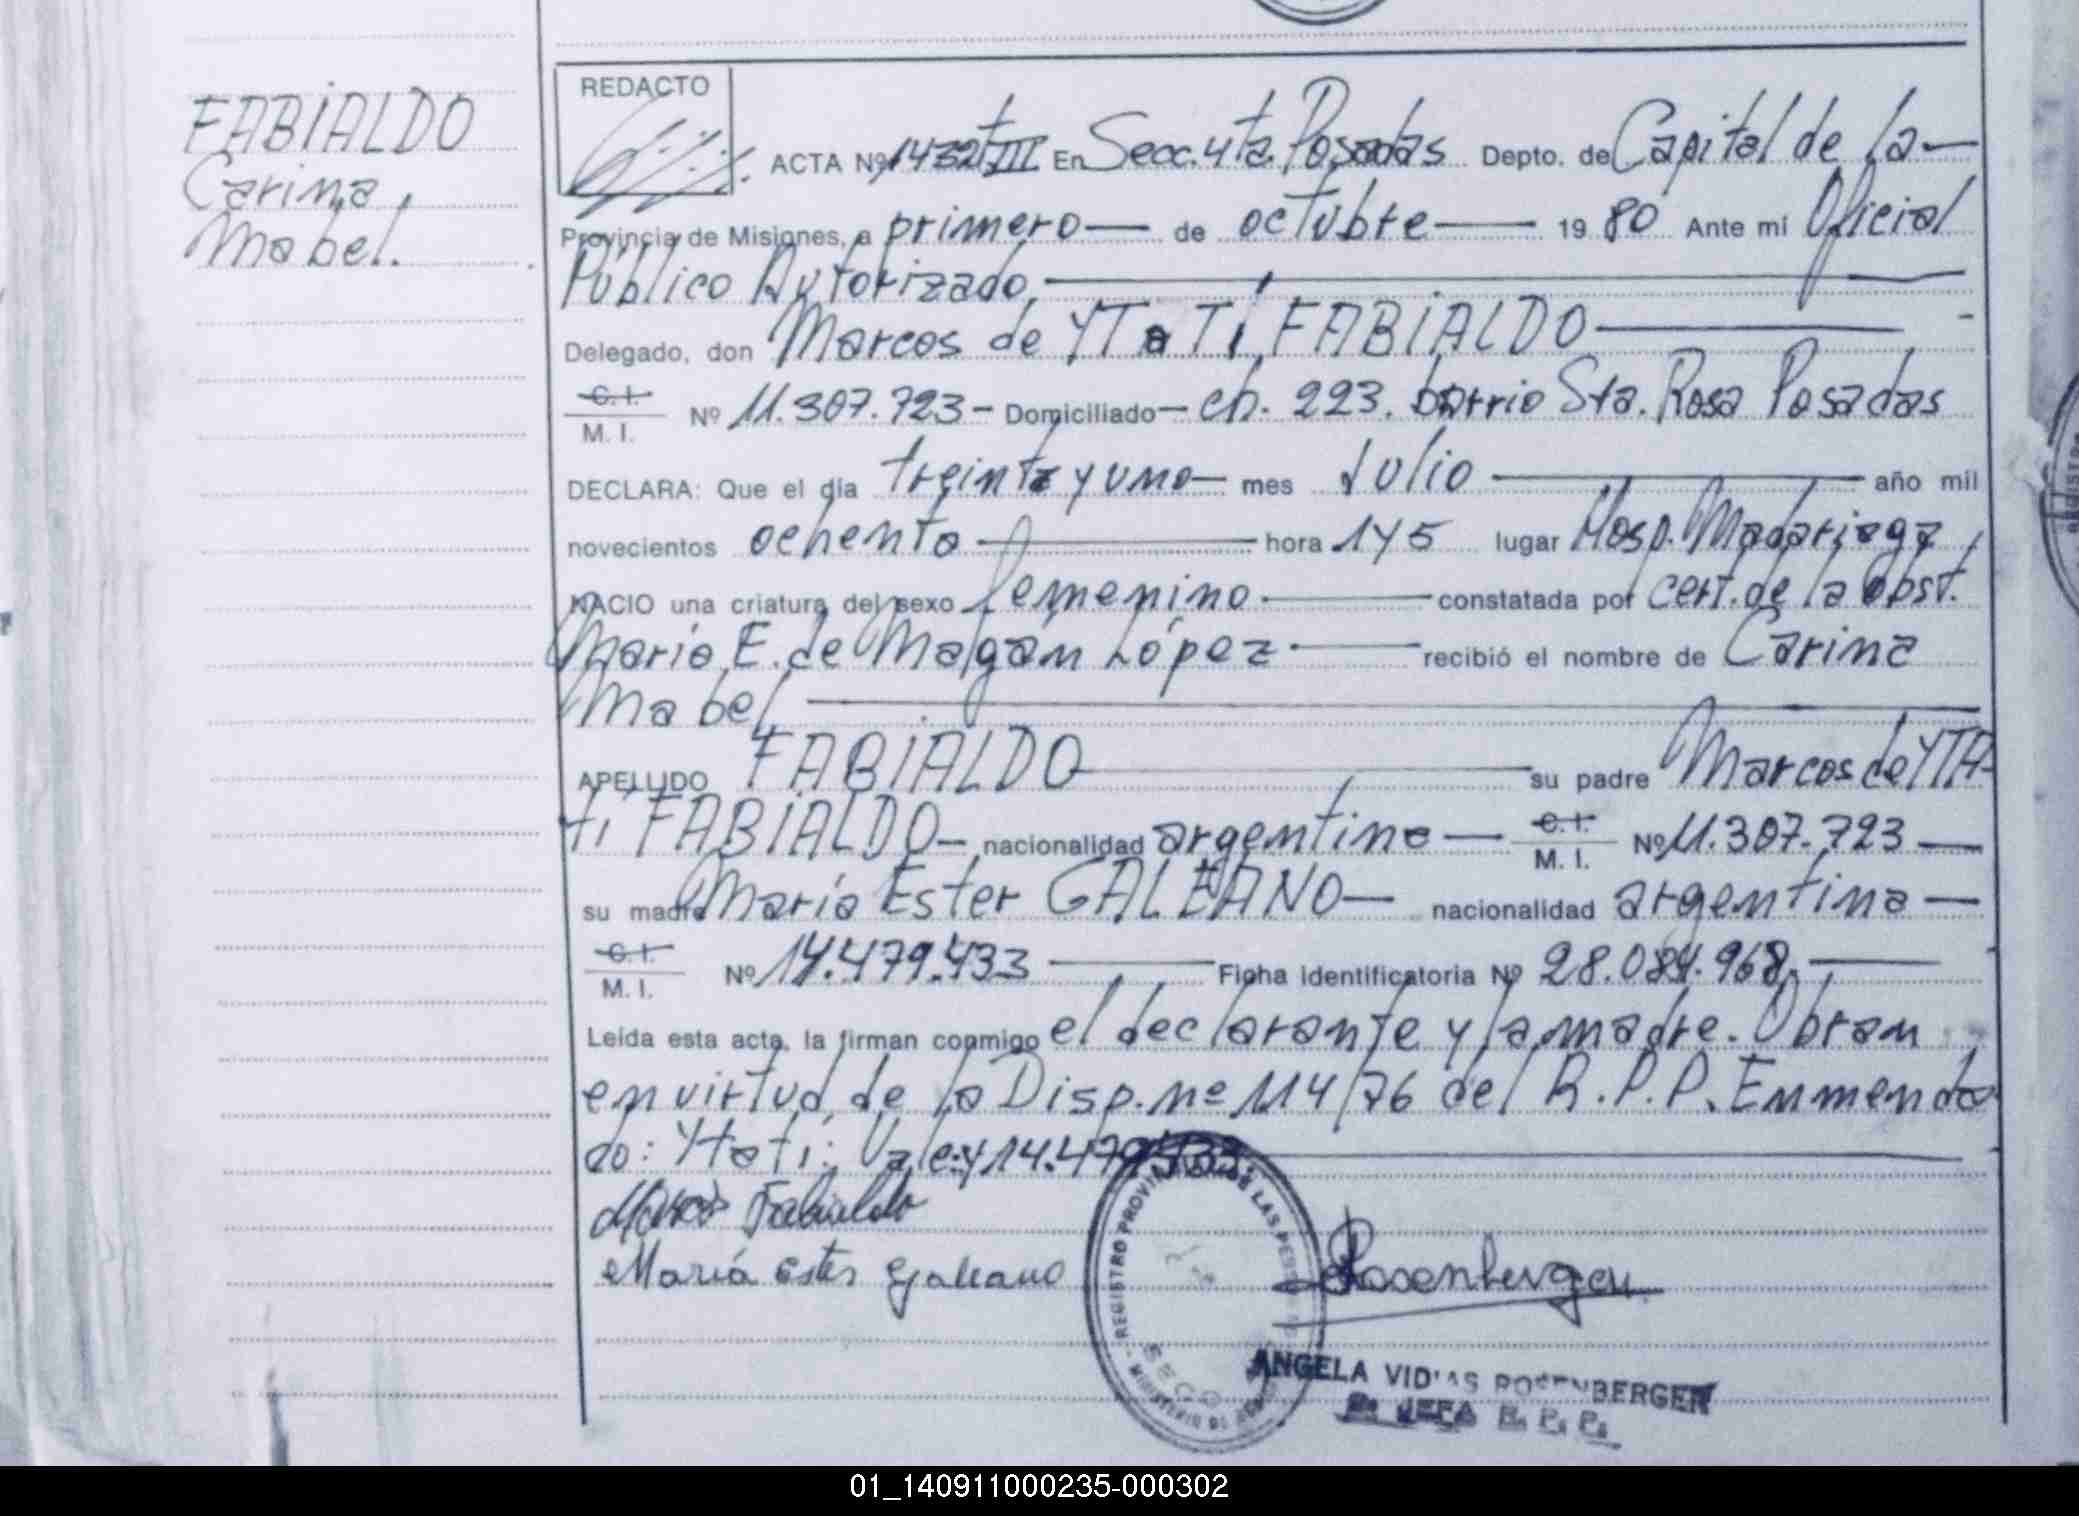 FABIALDO
Carina
Mabel.
REDACTO
ACTA Nº 1432 T III En Secc. 4ta. Posadas Depto. de Capital de la—
Provincia de Misiones, a primero— de octubre— 19 80 Ante mi Oficial
Público Autorizado,—
Delegado, don Marcos de YTaTí FABIALDO—
C.I.
M. I. Nº 11.307.723- Domiciliado- ch. 223. barrio Sta. Rosa Posadas
DECLARA: Que el día treinta y uno— mes Julio — año mil
novecientos ochenta — hora 145 lugar Hosp. Madariaga,
NACIO una criatura del sexo femenino — constatada por cert. de la obst.
María E. de Malgan López — recibió el nombre de Carina
Mabel —
APELLIDO FABIALDO — su padre Marcos de YTA-
Tí FABIALDO— nacionalidad argentina — C.I.
M. I. Nº 11.307.723 —
su madre María Ester GALEANO— nacionalidad argentina —
C.I.
M. I. Nº 14.479.433 — Ficha Identificatoria Nº 28.084.968, —
Leída esta acta, la firman conmigo el declarante y la madre. Obran
en virtud de la Disp. nº 114/76 del R.P.P. Enmenda
do: Ytatí: Vale: y 14.479.433. —
Marcos Fabialdo
María Ester Galeano
Rosenberger
REGISTRO PROVINCIAL DE LAS PERSONAS
ANGELA VIDAS ROSENBERGER
JEFA R. P. P.
01_140911000235-000302